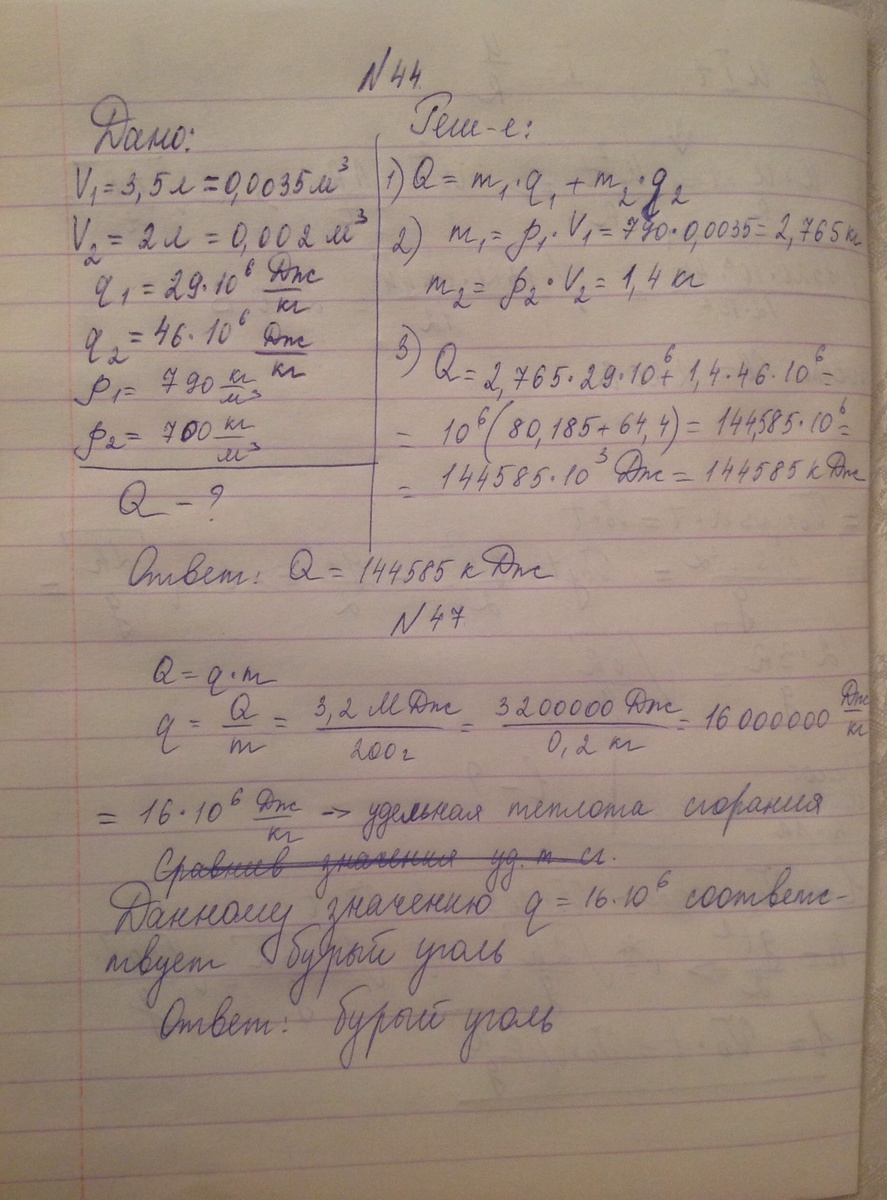 N 44.
Дано:
V₁ = 3,5 л = 0,0035 м³
V₂ = 2 л = 0,002 м³
q₁ = 29·10⁶ Дж/кг
q₂ = 46·10⁶ Дж/кг
ρ₁ = 790 кг/м³
ρ₂ = 700 кг/м³
Q - ?
Реш-е:
1) Q = m₁·q₁ + m₂·q₂
2) m₁ = ρ₁·V₁ = 790·0,0035 = 2,765 кг
m₂ = ρ₂·V₂ = 1,4 кг
3) Q = 2,765·29·10⁶ + 1,4·46·10⁶ =
= 10⁶(80,185 + 64,4) = 144,585·10⁶ =
= 144585·10³ Дж = 144585 кДж
Ответ: Q = 144585 кДж
N 47
Q = q·m
q = Q/m = 3,2 МДж/200г = 3200000 Дж/0,2 кг = 16000000 Дж/кг
= 16·10⁶ Дж/кг → удельная теплота сгорания
Сравнив значения уд. т. сг.
Данному значению q = 16·10⁶ соответс-
твует бурый уголь
Ответ: бурый уголь